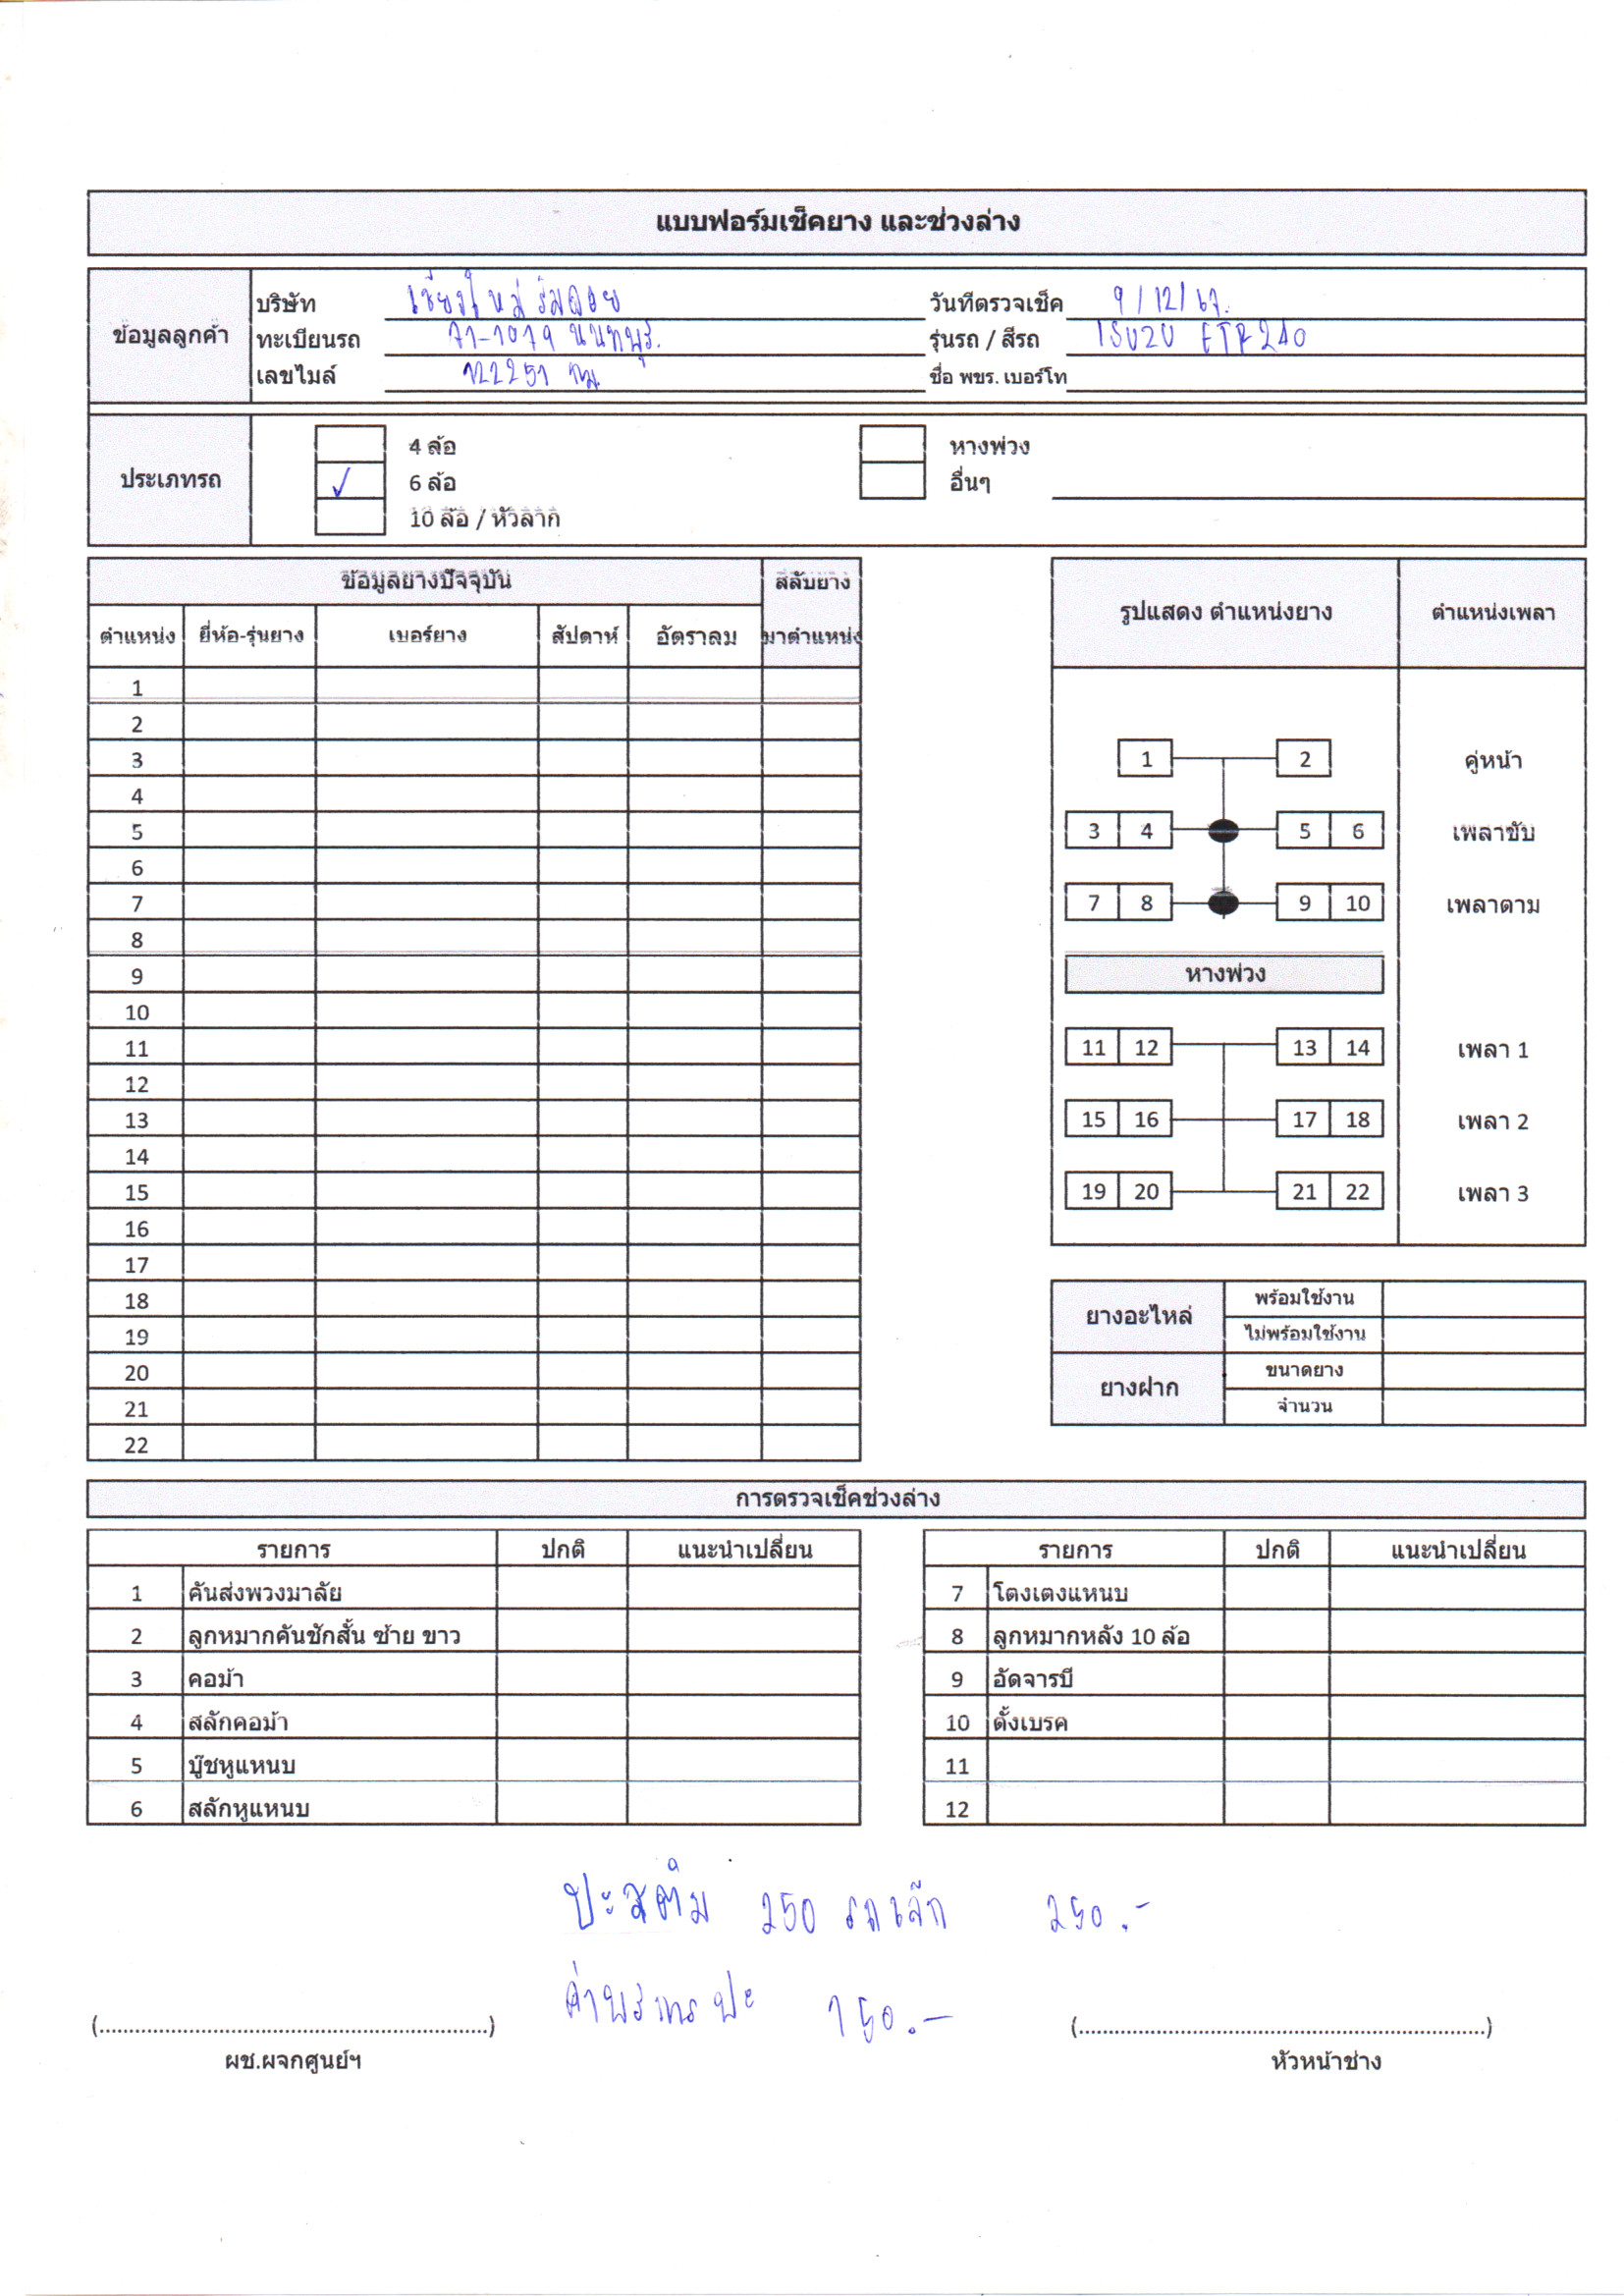 แบบฟอร์มเช็คยาง และช่วงล่าง
ข้อมูลลูกค้า
บริษัท เชียงใหม่ ริมดอย
วันที่ตรวจเช็ค 9/12/67.
ทะเบียนรถ 71-1079 นนทบุรี.
รุ่นรถ / สีรถ ISUZU FTR240
เลขไมล์ 122251 กม.
ชื่อ พขร. เบอร์โท
ประเภทรถ
4 ล้อ
หางพ่วง
✓ 6 ล้อ
อื่นๆ
10 ล้อ / หัวลาก
ข้อมูลยางปัจจุบัน สลับยาง
ตำแหน่ง ยี่ห้อ-รุ่นยาง เบอร์ยาง สัปดาห์ อัตราลม มาตำแหน่ง
1
2
3
4
5
6
7
8
9
10
11
12
13
14
15
16
17
18
19
20
21
22
รูปแสดง ตำแหน่งยาง ตำแหน่งเพลา
1 2 คู่หน้า
3 4 5 6 เพลาขับ
7 8 9 10 เพลาตาม
หางพ่วง
11 12 13 14 เพลา 1
15 16 17 18 เพลา 2
19 20 21 22 เพลา 3
ยางอะไหล่
พร้อมใช้งาน
ไม่พร้อมใช้งาน
ยางฝาก
ขนาดยาง
จำนวน
การตรวจเช็คช่วงล่าง
รายการ ปกติ แนะนำเปลี่ยน
1 คันส่งพวงมาลัย
2 ลูกหมากคันชักสั้น ซ้าย ขาว
3 คอม้า
4 สลักคอม้า
5 บู๊ชหูแหนบ
6 สลักหูแหนบ
รายการ ปกติ แนะนำเปลี่ยน
7 โตงเตงแหนบ
8 ลูกหมากหลัง 10 ล้อ
9 อัดจารบี
10 ตั้งเบรค
11
12
ปะสตีม 250 รถเล็ก 250.-
ค่าบริการ ปะ 150.-
(....................) (....................)
ผช.ผจกศูนย์ฯ หัวหน้าช่าง